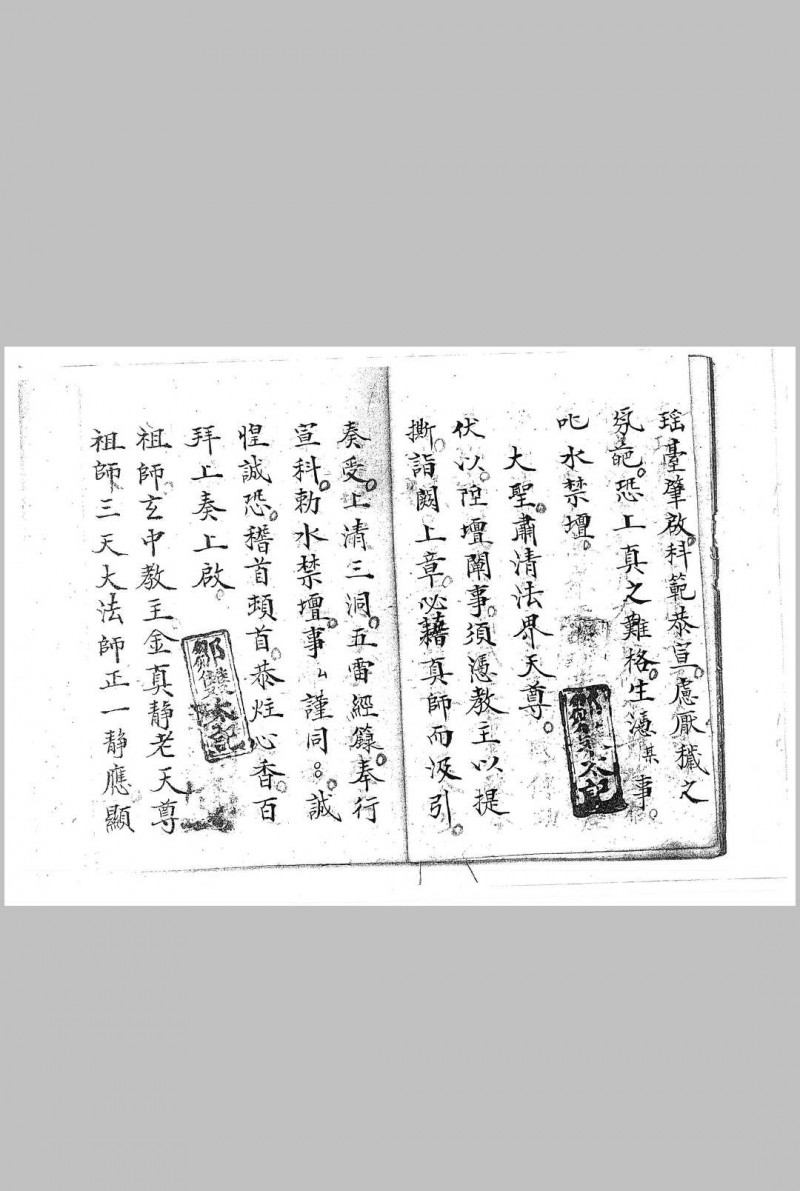 瑤臺肇啟。科範恭宣。慮厭穢之
氛。恐上真之難格。生憑某事。
叱水禁壇。
大聖肅清法界天尊。
伏以。陞壇闡事。須憑教主以提
撕。詣闕上章。必藉真師而汲引。
奏受。上清三洞。五雷經籙。奉行
宣科。勅水禁壇。事〻謹同。誠
惶誠恐。稽首頓首。恭炷心香。百
拜上奏上啟。
祖師玄中教主金真靜老天尊
祖師三天大法師正一靜應顯
鄒雙太記